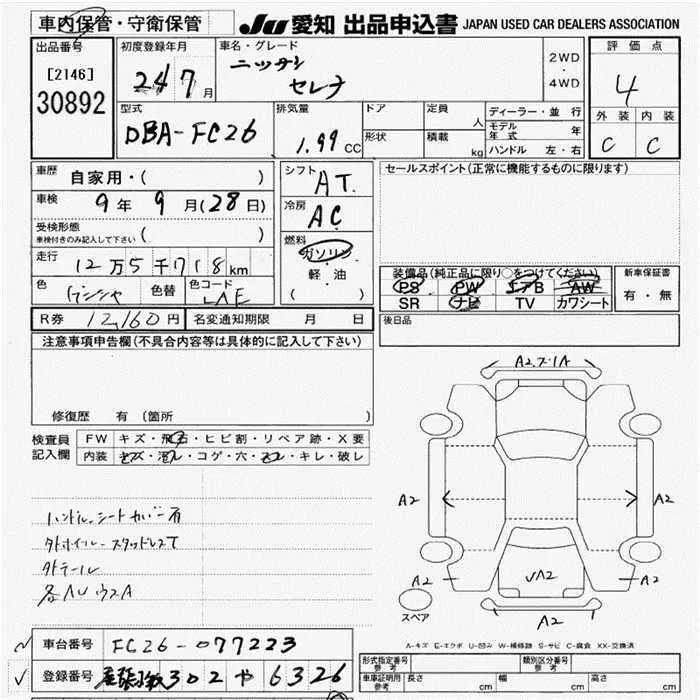 車内保管・守衛保管
JU 愛知 出品申込書 JAPAN USED CAR DEALERS ASSOCIATION
出品番号
[2146]
30892
初度登録年月
24 7月
車名・グレード
ニッサン
セレナ
2WD
・
4WD
評価点
4
外装 内装
C C
型式
DBA-FC26
排気量
1.99 CC
ドア
形状
定員 人
積載 kg
ディーラー・並行
モデル年式 年
ハンドル 左・右
車歴 自家用・( )
車検 9年 9月(28日)
受検形態
車検付きのみ記入して下さい ( )
走行 12万5千718km
色 色替 色コード LAE
シフト AT
冷房 AC
燃料
ガソリン
軽・油
( )
セールスポイント(正常に機能するものに限ります)
装備品(純正品に限り○をつけてください)
PS PW エアB AW
SR ナビ TV カワシート
新車保証書
有・無
R券 12,160円 名変通知期限 月 日
後日品
注意事項申告欄(不具合内容等は具体的に記入して下さい)
修復歴 有 (箇所
検査員記入欄
FW キズ・飛石・ヒビ割・リペア跡・X要
内装 キズ・汚レ・コゲ・穴・スレ・キレ・破レ
ハンドル、シートカバー有
タトホイル-スタッドレスT
タトテール
各AUウスA
A2.ズ1A
A2
A2
A2
√A2
A2
A2
スペア
A-キズ E-エクボ U-凹み W-補修跡 S-サビ C-腐食 XX-交換済
車台番号 FC26-077223
登録番号 尾張小牧302や6326
形式指定番号
参考
類別区分番号
参考
車庫証明用
参考
長さ cm 幅 cm 高さ cm